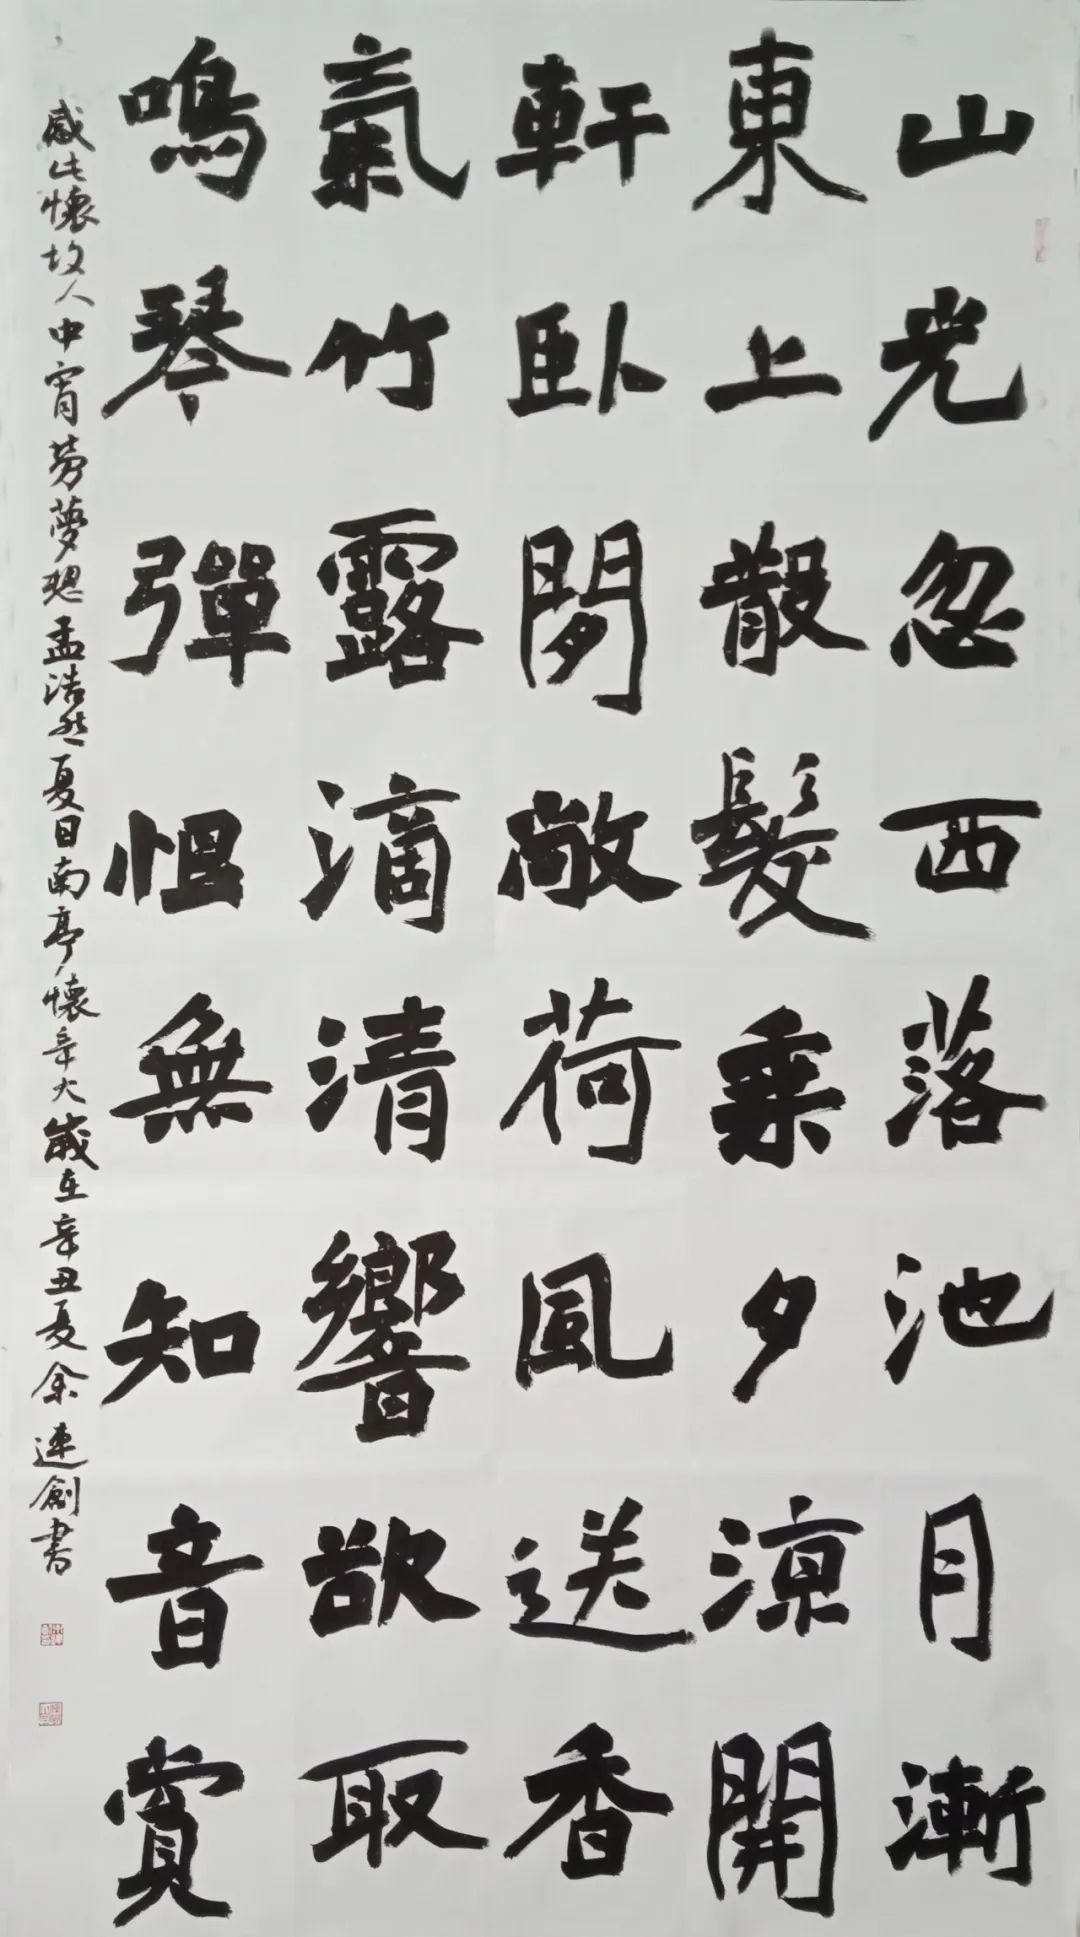 山光忽西落池月漸
東上散髮乘夕涼開
軒卧閒敞荷風送香
氣竹露滴清響欲取
鳴琴彈恨無知音賞
感此懷故人中宵勞夢想孟浩然夏日南亭懷辛大歲在辛丑夏余連創書